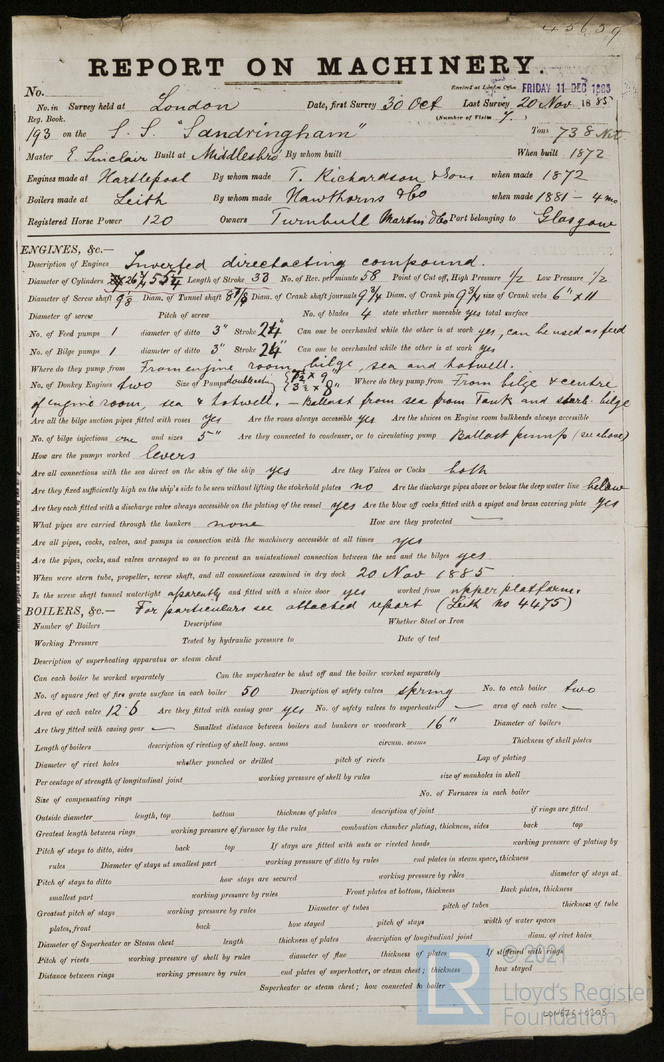 45659
REPORT ON MACHINERY.
No. Received at London Office FRIDAY 11 DEC 1885
No. in Survey held at London Date, first Survey 30 Oct Last Survey 20 Nov 1885
Reg. Book. (Number of Visits 7.)
193 on the S. S. "Sandringham" Tons 738 Net
Master E. Sinclair Built at Middlesbro By whom built When built 1872
Engines made at Hartlepool By whom made T. Richardson & Sons when made 1872
Boilers made at Leith By whom made Hawthorns & Co when made 1881 - 4 mo
Registered Horse Power 120 Owners Turnbull Martin & Co Port belonging to Glasgow
ENGINES, &c.—
Description of Engines Inverted direct acting compound.
Diameter of Cylinders 26¾ 55¼ Length of Stroke 33 No. of Rev. per minute 58 Point of Cut off, High Pressure 1/2 Low Pressure 1/2
Diameter of Screw shaft 9⅛ Diam. of Tunnel shaft 8⅞ Diam. of Crank shaft journals 9¾ Diam. of Crank pin 9¾ size of Crank webs 6" x 11
Diameter of screw Pitch of screw No. of blades 4 state whether moveable yes total surface
No. of Feed pumps 1 diameter of ditto 3" Stroke 24" Can one be overhauled while the other is at work yes, can be used as feed
No. of Bilge pumps 1 diameter of ditto 3" Stroke 24" Can one be overhauled while the other is at work yes
Where do they pump from From engine room, bilge, sea and hotwell.
No. of Donkey Engines two Size of Pumps double acting 7½ x 9" 3½ x 8" Where do they pump from From bilge & centre
of engine room, sea & hotwell. - Ballast from sea from Tank and starb. bilge
Are all the bilge suction pipes fitted with roses yes Are the roses always accessible yes Are the sluices on Engine room bulkheads always accessible
No. of bilge injections one and sizes 5" Are they connected to condenser, or to circulating pump Ballast pump (see above)
How are the pumps worked levers
Are all connections with the sea direct on the skin of the ship yes Are they Valves or Cocks both
Are they fixed sufficiently high on the ship's side to be seen without lifting the stokehold plates no Are the discharge pipes above or below the deep water line below
Are they each fitted with a discharge valve always accessible on the plating of the vessel yes Are the blow off cocks fitted with a spigot and brass covering plate yes
What pipes are carried through the bunkers none How are they protected —
Are all pipes, cocks, valves, and pumps in connection with the machinery accessible at all times yes
Are the pipes, cocks, and valves arranged so as to prevent an unintentional connection between the sea and the bilges yes
When were stern tube, propeller, screw shaft, and all connections examined in dry dock 20 Nov 1885
Is the screw shaft tunnel watertight apparently and fitted with a sluice door yes worked from upper platform.
BOILERS, &c.— For particulars see attached report (Leith no 4475)
Number of Boilers Description Whether Steel or Iron
Working Pressure Tested by hydraulic pressure to Date of test
Description of superheating apparatus or steam chest
Can each boiler be worked separately Can the superheater be shut off and the boiler worked separately
No. of square feet of fire grate surface in each boiler 50 Description of safety valves spring No. to each boiler two
Area of each valve 12.6 Are they fitted with easing gear yes No. of safety valves to superheater — area of each valve —
Are they fitted with easing gear — Smallest distance between boilers and bunkers or woodwork 16" Diameter of boilers
Length of boilers description of riveting of shell long. seams circum. seams Thickness of shell plates
Diameter of rivet holes whether punched or drilled pitch of rivets Lap of plating
Per centage of strength of longitudinal joint working pressure of shell by rules size of manholes in shell
Size of compensating rings No. of Furnaces in each boiler
Outside diameter length, top bottom thickness of plates description of joint if rings are fitted
Greatest length between rings working pressure of furnace by the rules combustion chamber plating, thickness, sides back top
Pitch of stays to ditto, sides back top If stays are fitted with nuts or riveted heads working pressure of plating by
rules Diameter of stays at smallest part working pressure of ditto by rules end plates in steam space, thickness
Pitch of stays to ditto how stays are secured working pressure by rules diameter of stays at
smallest part working pressure by rules Front plates at bottom, thickness Back plates, thickness
Greatest pitch of stays working pressure by rules Diameter of tubes pitch of tubes thickness of tube
plates, front back how stayed pitch of stays width of water spaces
Diameter of Superheater or Steam chest length thickness of plates description of longitudinal joint diam. of rivet holes
Pitch of rivets working pressure of shell by rules diameter of flue thickness of plates If stiffened with rings
Distance between rings working pressure by rules end plates of superheater, or steam chest; thickness how stayed
Superheater or steam chest; how connected to boiler
LR © 2021
Lloyd's Register
Foundation